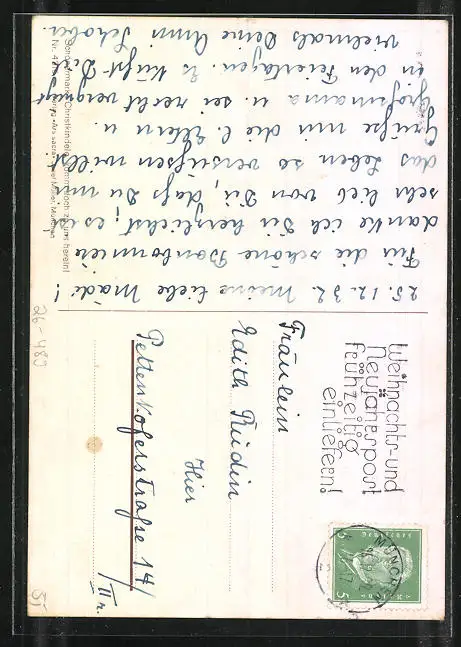 25. 12. 32. Meine liebe Mädi!
Für die schöne Bonboniere
danke ich Dir herzlichst; es ist
sehr lieb von Dir, daß Du mir
das Leben so versüßen willst.
Grüße mir die l. Eltern u.
Großmama u. sei recht vergnügt
in den Feiertagen. Es küßt Dich
vielmals Deine Anni
Weihnachts- und
Neujahrspost
frühzeitig
einliefern!
MÜNCHEN
5 5
Fräulein
Edith Rüdin
Hier
Pettenkoferstraße 14/
II r.
26-489